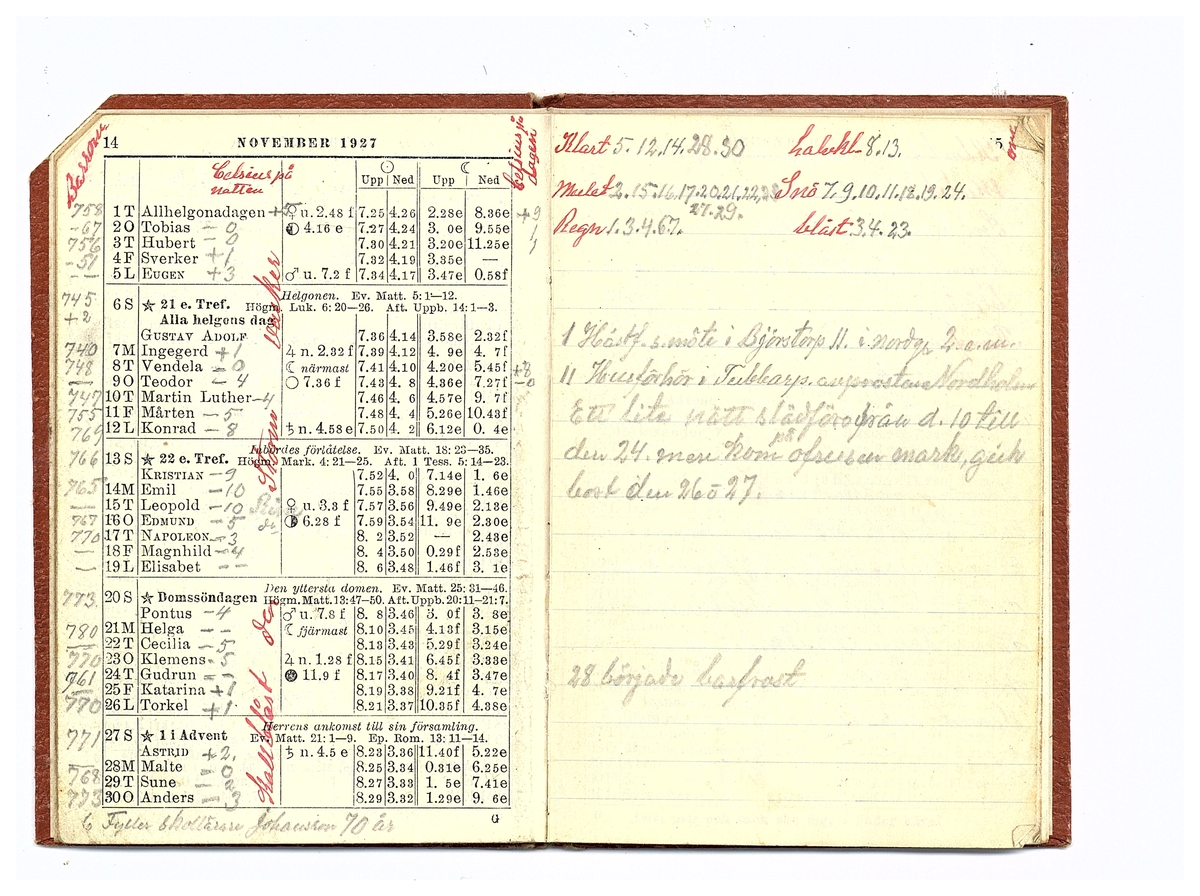 14 NOVEMBER 1927
Barom
Celsius på
natten
Celsius på
dagen
Upp Ned Upp Ned
758 1 T Allhelgonadagen +5 ♀ u. 2.48 f 7.25 4.26 2.28e 8.36e +9
-67 2 O Tobias - 0 4.16 e 7.27 4.24 3. 0e 9.55e
756 3 T Hubert - 0 7.30 4.21 3.20e 11.25e
-51 4 F Sverker +1 7.32 4.19 3.35e —
5 L EUGEN +3 ♂ u. 7.2 f 7.34 4.17 3.47e 0.58f
745 6 S ☆ 21 e. Tref. Helgonen. Ev. Matt. 5: 1—12.
+2 Högm. Luk. 6: 20—26. Aft. Uppb. 14: 1—3.
Alla helgons dag
GUSTAV ADOLF 7.36 4.14 3.58e 2.32f
740 7 M Ingegerd +1 ♃ n. 2.32 f 7.39 4.12 4. 9e 4. 7f
748 8 T Vendela - 0 ☾ närmast 7.41 4.10 4.20e 5.45f +8
— 9 O Teodor - 4 ○ 7.36 f 7.43 4. 8 4.36e 7.27f -0
747 10 T Martin Luther -4 7.46 4. 6 4.57e 9. 7f
755 11 F Mårten - 5 7.48 4. 4 5.26e 10.43f
769 12 L Konrad - 8 ♄ n. 4.58 e 7.50 4. 2 6.12e 0. 4e
766 13 S ☆ 22 e. Tref. Inbördes förlåtelse. Ev. Matt. 18: 23—35.
Högm. Mark. 4: 21—25. Aft. 1 Tess. 5: 14—23.
KRISTIAN - 9 7.52 4. 0 7.14e 1. 6e
765 14 M Emil - 10 7.55 3.58 8.29e 1.46e
— 15 T Leopold - 10 ♀ u. 3.3 f 7.57 3.56 9.49e 2.13e
767 16 O EDMUND - 5 6.28 f 7.59 3.54 11. 9e 2.30e
770 17 T NAPOLEON - 3 8. 2 3.52 — 2.43e
— 18 F Magnhild - 4 8. 4 3.50 0.29f 2.53e
19 L Elisabet - - 8. 6 3.48 1.46f 3. 1e
773 20 S ☆ Domssöndagen Den yttersta domen. Ev. Matt. 25: 31—46.
Högm. Matt. 13: 47—50. Aft. Uppb. 20: 11—21: 7.
Pontus - 4 ♂ u. 7.8 f 8. 8 3.46 3. 0f 3. 8e
780 21 M Helga - - ☾ fjärmast 8.10 3.45 4.13f 3.15e
— 22 T Cecilia - 5 8.13 3.43 5.29f 3.24e
770 23 O Klemens - 5 ♃ n. 1.28 f 8.15 3.41 6.45f 3.33e
761 24 T Gudrun - - 11.9 f 8.17 3.40 8. 4f 3.47e
— 25 F Katarina +1 8.19 3.38 9.21f 4. 7e
770 26 L Torkel +1 8.21 3.37 10.35f 4.38e
771 27 S ☆ 1 i Advent Herrens ankomst till sin församling.
Ev. Matt. 21: 1—9. Ep. Rom. 13: 11—14.
ASTRID +2 ♄ n. 4.5 e 8.23 3.36 11.40f 5.22e
768 28 M Malte - 0 8.25 3.34 0.31e 6.25e
— 29 T Sune - 2 8.27 3.33 1. 5e 7.41e
773 30 O Anders - 3 8.29 3.32 1.29e 9. 6e
G
Storm
6 Fyller Skollärare Johansson 70 år
Klart 5.12.14.28.30 halvkl. 8.13.
Mulet 2.15.16.17.20.21.22.23 Snö 7.9.10.11.18.19.24.
27.29.
Regn 1.3.4.67. blåst 3.4.23.
1 Hästf. s. möte i Björstorp 11. i nordg 2 e.m.
11 Husförhör i Tubbarp av prosten Nordholm
Ett lite nätt slädföre från d. 10 till
den 24. mere kom på ofrusen mark, gick
bort den 26 o 27.
28 började barfrost